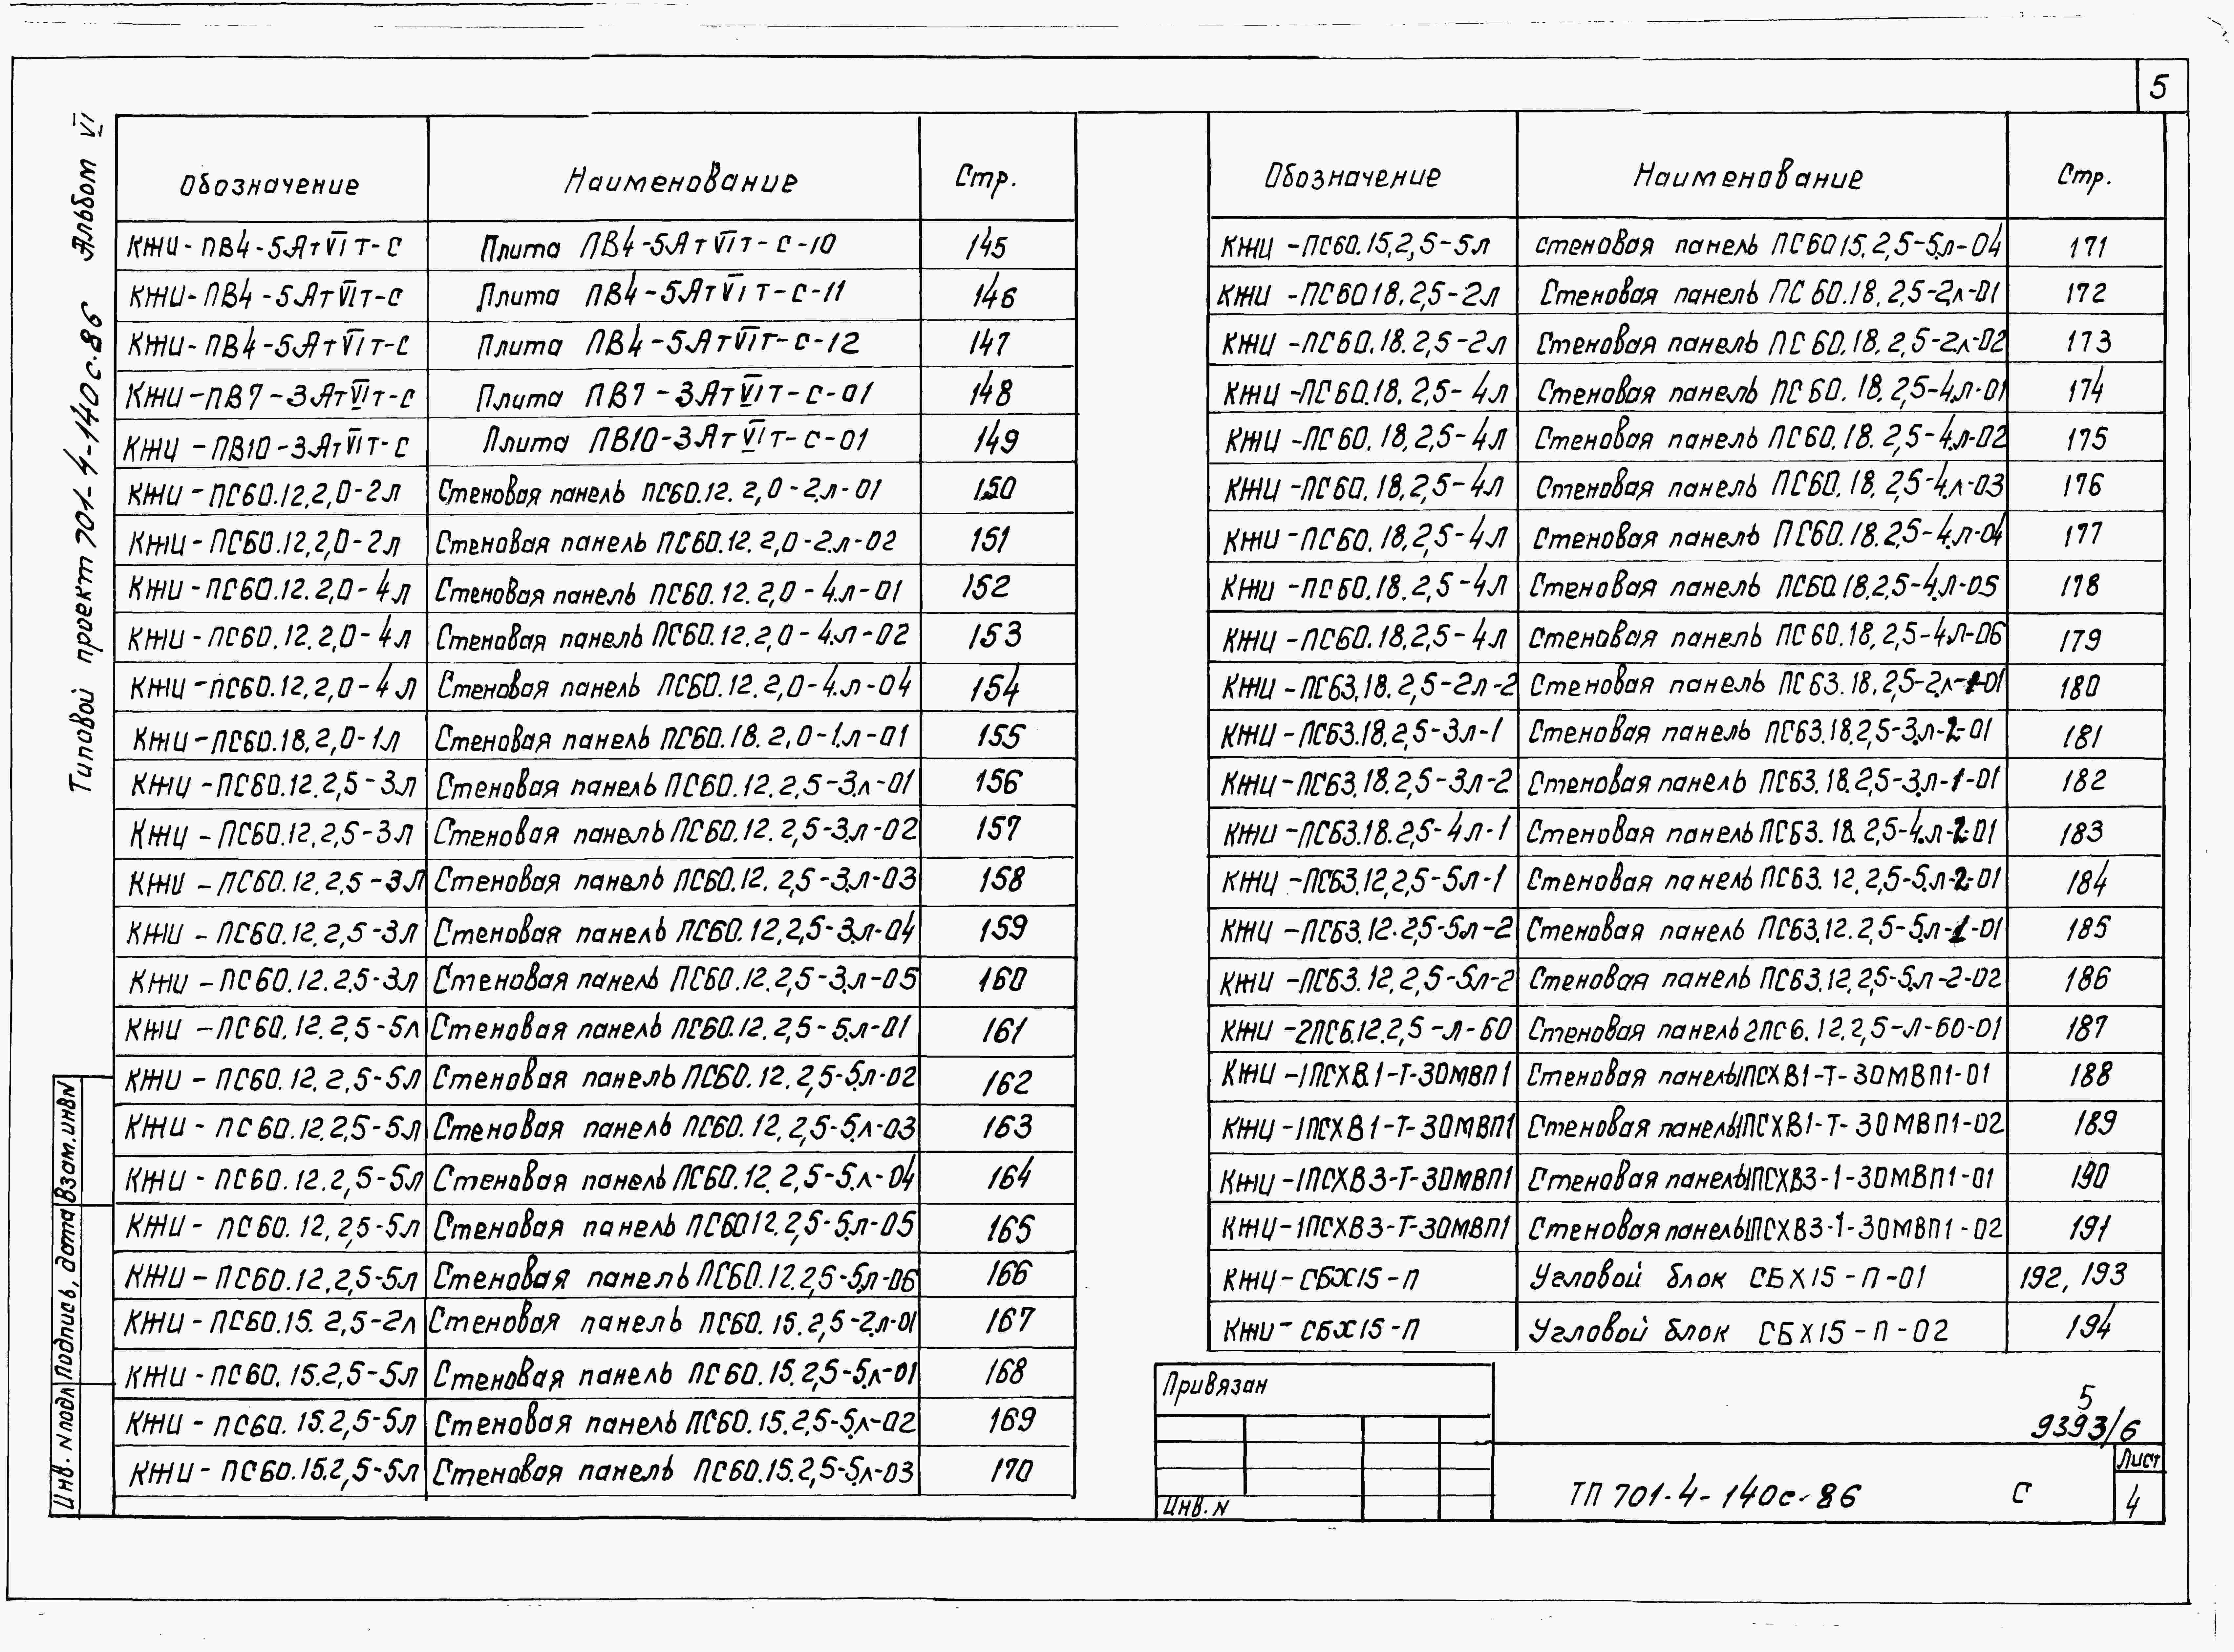 5
Типовой проект 701-4-140с.86 Альбом VI
Обозначение Наименование Стр.
КЖИ-ПВ4-5АтVIт-С Плита ПВ4-5АтVIт-С-10 145
КЖИ-ПВ4-5АтVIт-С Плита ПВ4-5АтVIт-С-11 146
КЖИ-ПВ4-5АтVIт-С Плита ПВ4-5АтVIт-С-12 147
КЖИ-ПВ7-3АтVIт-С Плита ПВ7-3АтVIт-С-01 148
КЖИ-ПВ10-3АтVIт-С Плита ПВ10-3АтVIт-С-01 149
КЖИ-ПС60.12.2,0-2л Стеновая панель ПС60.12.2,0-2.л-01 150
КЖИ-ПС60.12,2,0-2л Стеновая панель ПС60.12.2,0-2.л-02 151
КЖИ-ПС60.12.2,0-4л Стеновая панель ПС60.12.2,0-4.л-01 152
КЖИ-ПС60.12.2,0-4л Стеновая панель ПС60.12.2,0-4.л-02 153
КЖИ-ПС60.12,2,0-4л Стеновая панель ПС60.12.2,0-4.л-04 154
КЖИ-ПС60.18.2,0-1л Стеновая панель ПС60.18.2,0-1.л-01 155
КЖИ-ПС60.12.2,5-3.л Стеновая панель ПС60.12.2,5-3.л-01 156
КЖИ-ПС60.12.2,5-3л Стеновая панель ПС60.12.2,5-3.л-02 157
КЖИ-ПС60.12.2,5-3л Стеновая панель ПС60.12.2,5-3.л-03 158
КЖИ-ПС60.12.2,5-3л Стеновая панель ПС60.12,2,5-3.л-04 159
КЖИ-ПС60.12.2,5-3л Стеновая панель ПС60.12.2,5-3.л-05 160
КЖИ-ПС60.12.2,5-5л Стеновая панель ПС60.12.2,5-5.л-01 161
КЖИ-ПС60.12.2,5-5л Стеновая панель ПС60.12.2,5-5.л-02 162
КЖИ-ПС60.12.2,5-5л Стеновая панель ПС60.12.2,5-5.л-03 163
КЖИ-ПС60.12.2,5-5л Стеновая панель ПС60.12.2,5-5.л-04 164
КЖИ-ПС60.12,2,5-5л Стеновая панель ПС6012.2,5-5.л-05 165
КЖИ-ПС60.12,2,5-5л Стеновая панель ПС60.12.2,5-5.л-06 166
КЖИ-ПС60.15.2,5-2л Стеновая панель ПС60.15.2,5-2.л-01 167
КЖИ-ПС60.15.2,5-5л Стеновая панель ПС60.15.2,5-5.л-01 168
КЖИ-ПС60.15.2,5-5л Стеновая панель ПС60.15.2,5-5.л-02 169
КЖИ-ПС60.15.2,5-5л Стеновая панель ПС60.15.2,5-5.л-03 170
Обозначение Наименование Стр.
КЖИ-ПС60.15,2,5-5л Стеновая панель ПС6015.2,5-5.л-04 171
КЖИ-ПС6018.2,5-2л Стеновая панель ПС60.18.2,5-2.л-01 172
КЖИ-ПС60.18.2,5-2л Стеновая панель ПС60.18.2,5-2.л-02 173
КЖИ-ПС60.18.2,5-4л Стеновая панель ПС60.18.2,5-4.л-01 174
КЖИ-ПС60.18,2,5-4л Стеновая панель ПС60.18.2,5-4.л-02 175
КЖИ-ПС60.18,2,5-4л Стеновая панель ПС60.18.2,5-4.л-03 176
КЖИ-ПС60.18,2,5-4л Стеновая панель ПС60.18.2,5-4.л-04 177
КЖИ-ПС60.18.2,5-4л Стеновая панель ПС60.18.2,5-4.л-05 178
КЖИ-ПС60.18.2,5-4л Стеновая панель ПС60.18,2,5-4.л-06 179
КЖИ-ПС63.18.2,5-2л-2 Стеновая панель ПС63.18.2,5-2.л-1-01 180
КЖИ-ПС63.18.2,5-3л-1 Стеновая панель ПС63.18.2,5-3.л-2-01 181
КЖИ-ПС63.18.2,5-3л-2 Стеновая панель ПС63.18.2,5-3.л-1-01 182
КЖИ-ПС63.18.2,5-4л-1 Стеновая панель ПС63.18.2,5-4.л-2-01 183
КЖИ-ПС63.12,2,5-5л-1 Стеновая панель ПС63.12.2,5-5.л-2-01 184
КЖИ-ПС63.12.2,5-5л-2 Стеновая панель ПС63.12.2,5-5.л-1-01 185
КЖИ-ПС63.12.2,5-5л-2 Стеновая панель ПС63.12.2,5-5.л-2-02 186
КЖИ-2ПС6.12.2,5-л-60 Стеновая панель 2ПС6.12.2,5-л-60-01 187
КЖИ-1ПСХВ1-Т-30МВП1 Стеновая панель 1ПСХВ1-Т-30МВП1-01 188
КЖИ-1ПСХВ1-Т-30МВП1 Стеновая панель 1ПСХВ1-Т-30МВП1-02 189
КЖИ-1ПСХВ3-Т-30МВП1 Стеновая панель 1ПСХВ3-1-30МВП1-01 190
КЖИ-1ПСХВ3-Т-30МВП1 Стеновая панель 1ПСХВ3-1-30МВП1-02 191
КЖИ-СБХ15-П Угловой блок СБХ15-П-01 192, 193
КЖИ-СБХ15-П Угловой блок СБХ15-П-02 194
Инв. N подл Подпись, дата Взам.инв N
Привязан
Инв. N
5
9393/6
ТП 701-4-140с-86 С
Лист
4